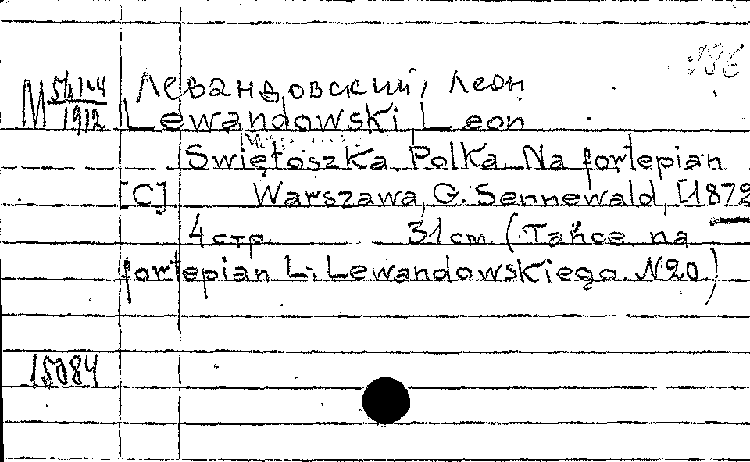 Левандовский, Леон
М 1912 Lewandowski Leon
Swiętoszka Polka. Na fortepian
[C] Warszawa, G. Sennewald, [1872
4 стр. 31 см. (Tańce na
fortepian L. Lewandowskiego. N 20.)
15084